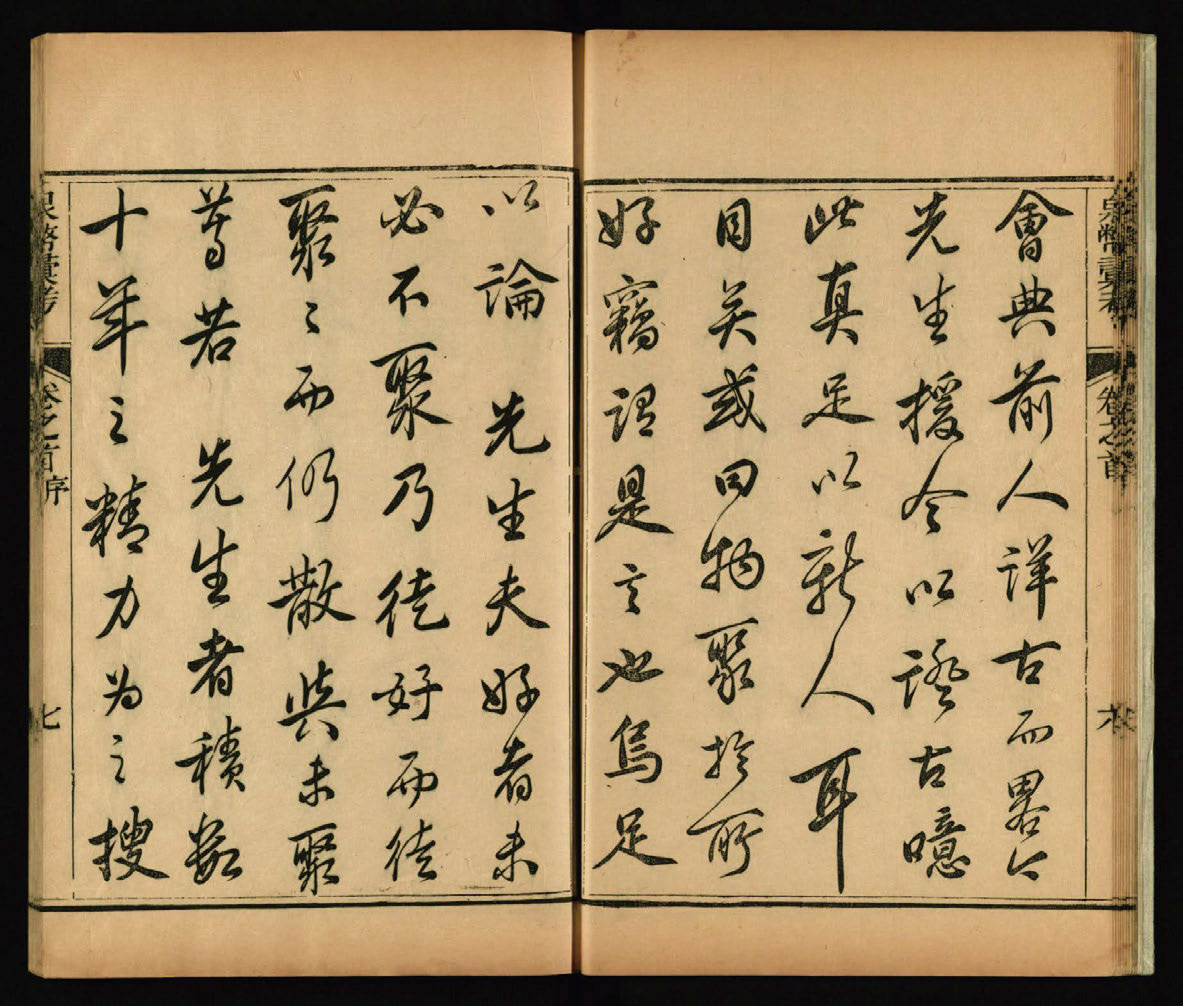 泉幣彙考 卷之首 六
會典前人詳古而畧今
先生援今以證古噫
此真足以新人耳
目矣或曰物聚於所
好竊謂是言也烏足
以論 先生夫好者未
必不聚乃徒好而徒
聚〻而仍散與未聚
等若 先生者積數
十年之精力為之搜
泉幣彙考 卷之首序 七